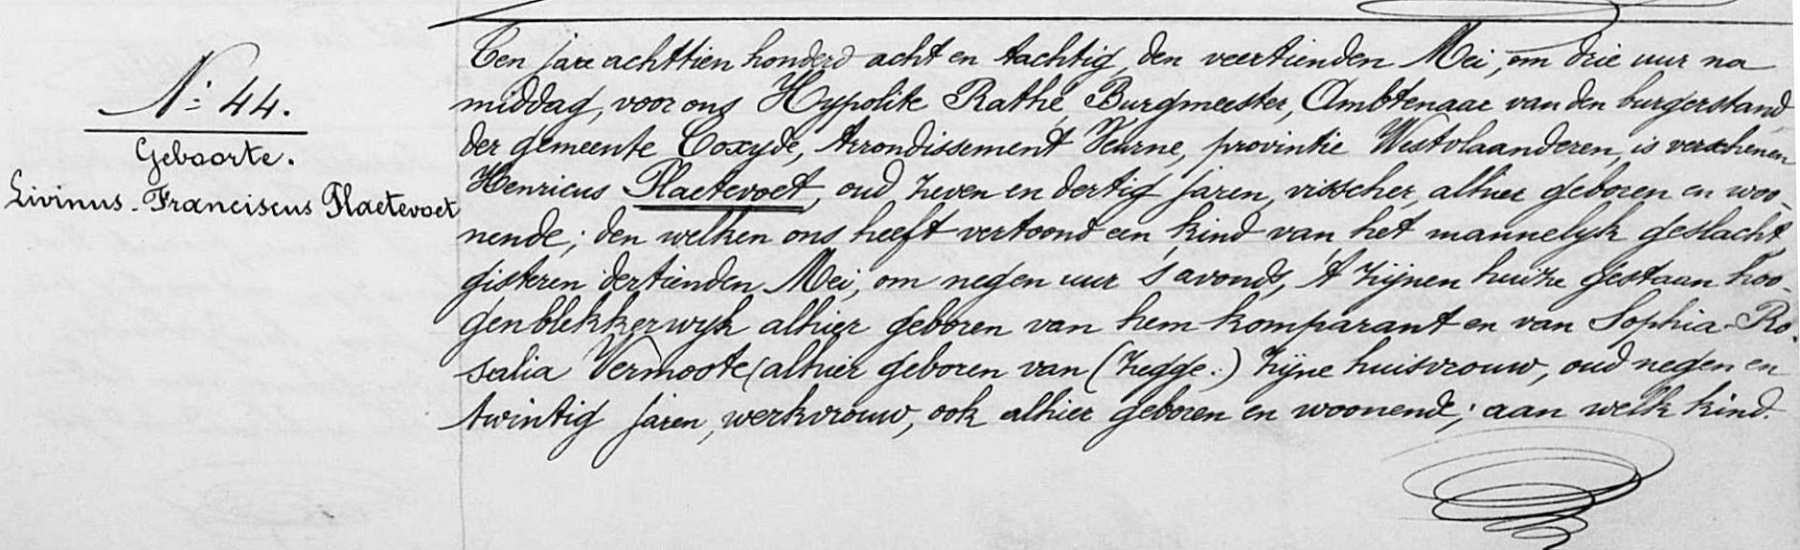 N.º 44.
Geboorte.
Livinus-Franciscus Plaetevoet
Ten jare achttien honderd acht en tachtig, den veertienden Mei, om drie uur na
middag, voor ons Hypolite Rathé, Burgmeester, Ambtenaar van den burgerstand
der gemeente Coxyde, Arrondissement Veurne, provintie Westvlaanderen, is verschenen
Henricus Plaetevoet, oud zeven en dertig jaren, visscher, alhier geboren en woo-
nende; den welken ons heeft vertoond een kind van het mannelyk geslacht,
gisteren dertienden Mei, om negen uur s'avonds, t' zijnen huize gestaan hoo-
genblekkerwyk alhier geboren van hem komparant en van Sophia-Ro-
salia Vermoote (alhier geboren van (zegge:) zijne huisvrouw, oud negen en
twintig jaren, werkvrouw, ook alhier geboren en woonende; aan welk kind.